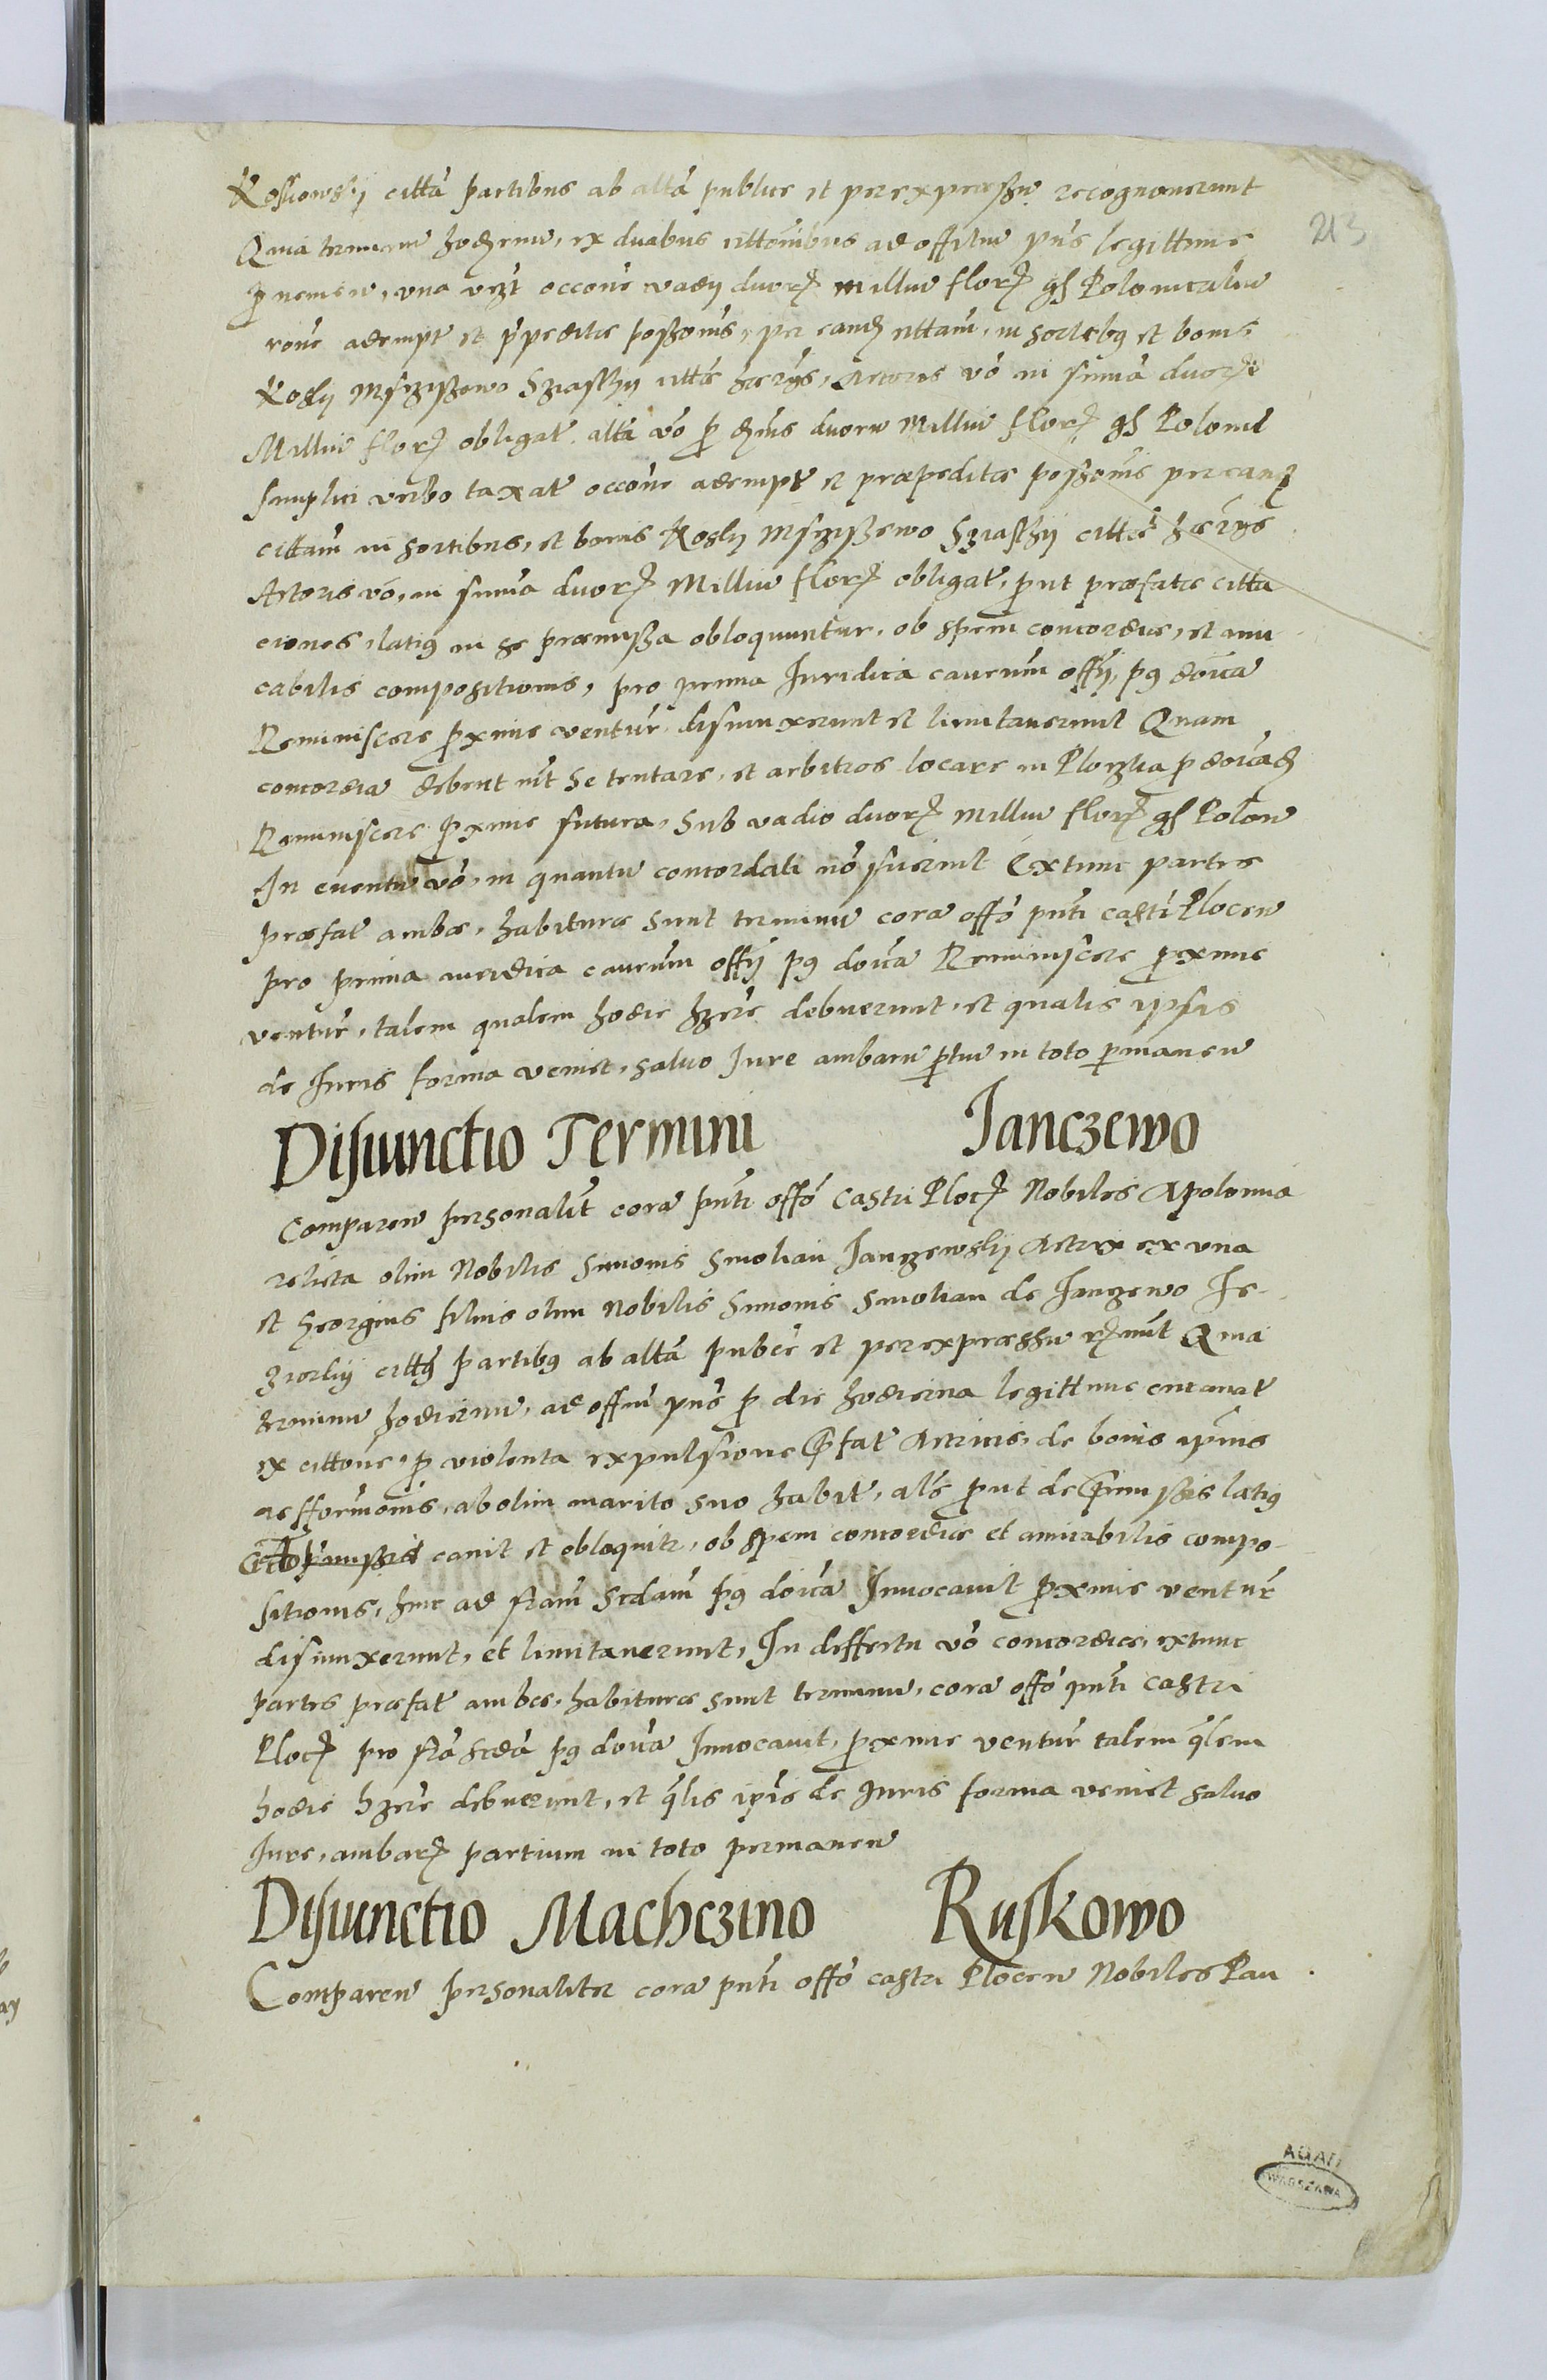 213
Kossowskij citta partibus ab alta publice et per expressu recognoverunt
Quia terminu hodiernu, ex duabus cittonibus ad offitiu pns legittime
una vezt occone vadij duorz milliu florz gh Polonicaliu
rone adempt et ppedite possonis, per eandz cittam, in sortibq et bonis
Kosky Msziszewo Szlaskij citte Actoris vo in suma duorz
Milliu florz obligat alta vo p duorw Milliu florz gh Polonic
simplici verbo taxat occone adempt et præpeditæ possonis per eanz
cittam in sortibus, et bonis Kosky Msziszewo Szlaskij citte
Actoris vo, in suma duorz Milliu florz obligat, put præfatæ citta
ciones, latiq in se præmissa obloquuntur, ob spem concordiæ, et ami
cabilis compositionis, pro prima Iuridica caurum offij, pq doica
Reminiscere pxime ventur disiunxerunt et limitaverunt Quam
concordia debent int se tentare, et arbitros locare in Ploczka p doicadz
Reminiscere pxime futura, sub vadio duorz milliu florz gh Polon
In eventu vo, in quantu concordati no fuerint Extunc partes
præfat ambæ, habituræ sunt terminu cora offo pnti castri Plocen
pro prima iuridica caurum offij pq doica Reminiscere pxime
ventur, talem qualem hodie hzere debuerunt, et qualis ipsis
de Iuris forma veniet, salvo Iure ambaru ptiu in toto pmanen
Disiunctio Termini Ianczewo
Comparen personalit cora pnti offo Castri Plocz Nobiles Apolonia
relicta olim Nobilis Simonis Smolian Ianczewskij Actrix ex una
et Georgius filius olim Nobilis Simonis Smolian de Ianczewo Ie-
ziorkij cittq partibq ab alta pubce et per expressu rzunt Quia
terminu hodiernu, ad offiu pns p die hodierna legittime emanat
ex cittone, p violenta expulsione pfat Actricis, de bonis ipius
ac fformonis, ab olim marito suo habit, als put de pmissis latiq
canit et obloquitr, ob spem concordiæ et amicabilis compo-
sitionis, hinc ad fiam scdam pq doica Invocavit pxime ventur
disiunxerunt, et limitaverunt, In deffectu vo concordiæ, extunc
partes præfat ambæ, habituræ sunt terminu, cora offo pnti castri
Plocz pro fia scda pq doica Invocavit, pxime ventur talem qlem
hodie hzere debuerunt, et qlis ipis de Iuris forma veniet salvo
Iure, ambarz partium in toto permanen
Disiunctio Machczino Ruskowo
Comparen personaliter cora pnti offo castri Plocen Nobiles Pau
AGAD
WARSZAWA